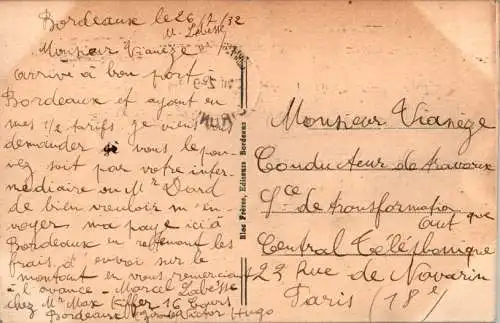 Bordeaux le 26/2/32
M. Labesse
Monsieur Vianèze
arrivé à bon port à
Bordeaux et ayant en
mes 1/2 tarifs je viens
demander si vous le pou-
vez soit par votre inter-
médiaire ou Mr Dard
de bien vouloir m'en
voyer ma paye ici à
Bordeaux en retenant les
frais d'envoi sur le
montant en vous remerciant
à l'avance - Marcel Labesse
chez Mr Max Kiffer 16 Cours
Bordeaux Victor Hugo
Bloc Frères, Editeurs Bordeaux
Monsieur Vianèze
Conducteur de travaux
Sce de transformation
aut que
Central Téléphonique
23 Rue de Navarin
Paris (18e)